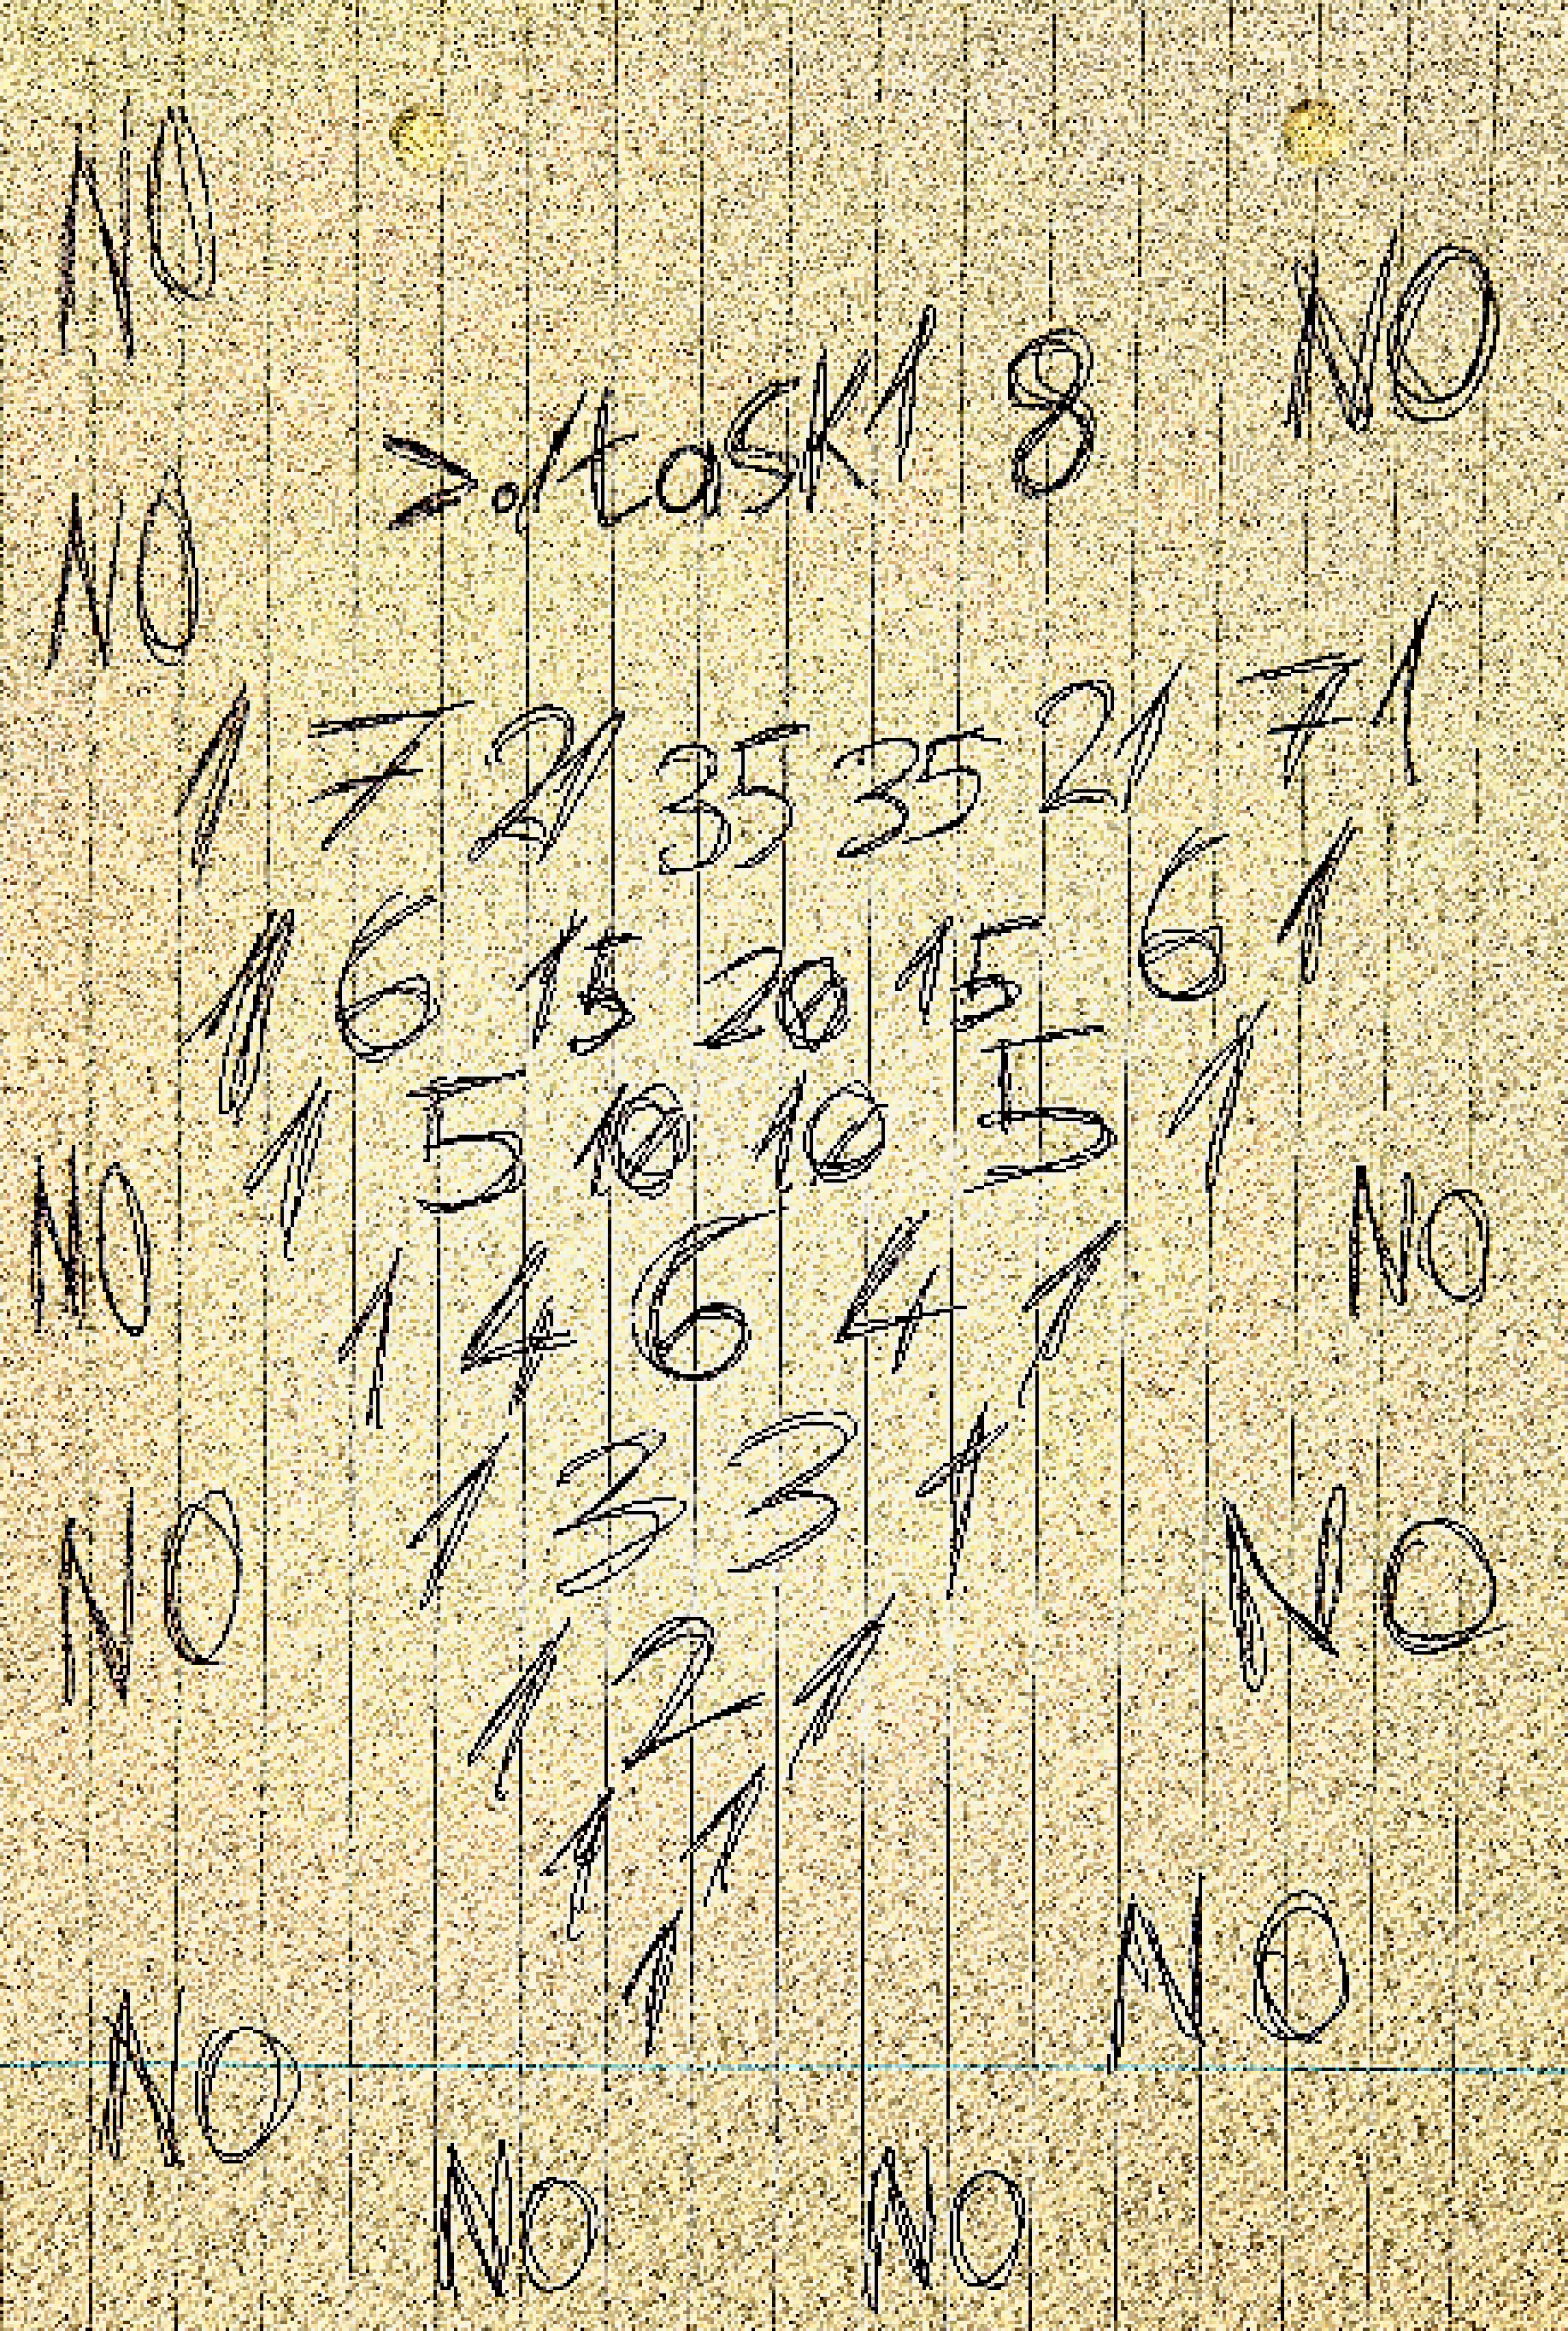 NO
NO
>./task1 8
NO
1 7 21 35 35 21 7 1
1 6 15 20 15 6 1
1 5 10 10 5 1
NO
NO
1 4 6 4 1
1 3 3 1
NO
NO
1 2 1
1 1
1
NO
NO
NO
NO